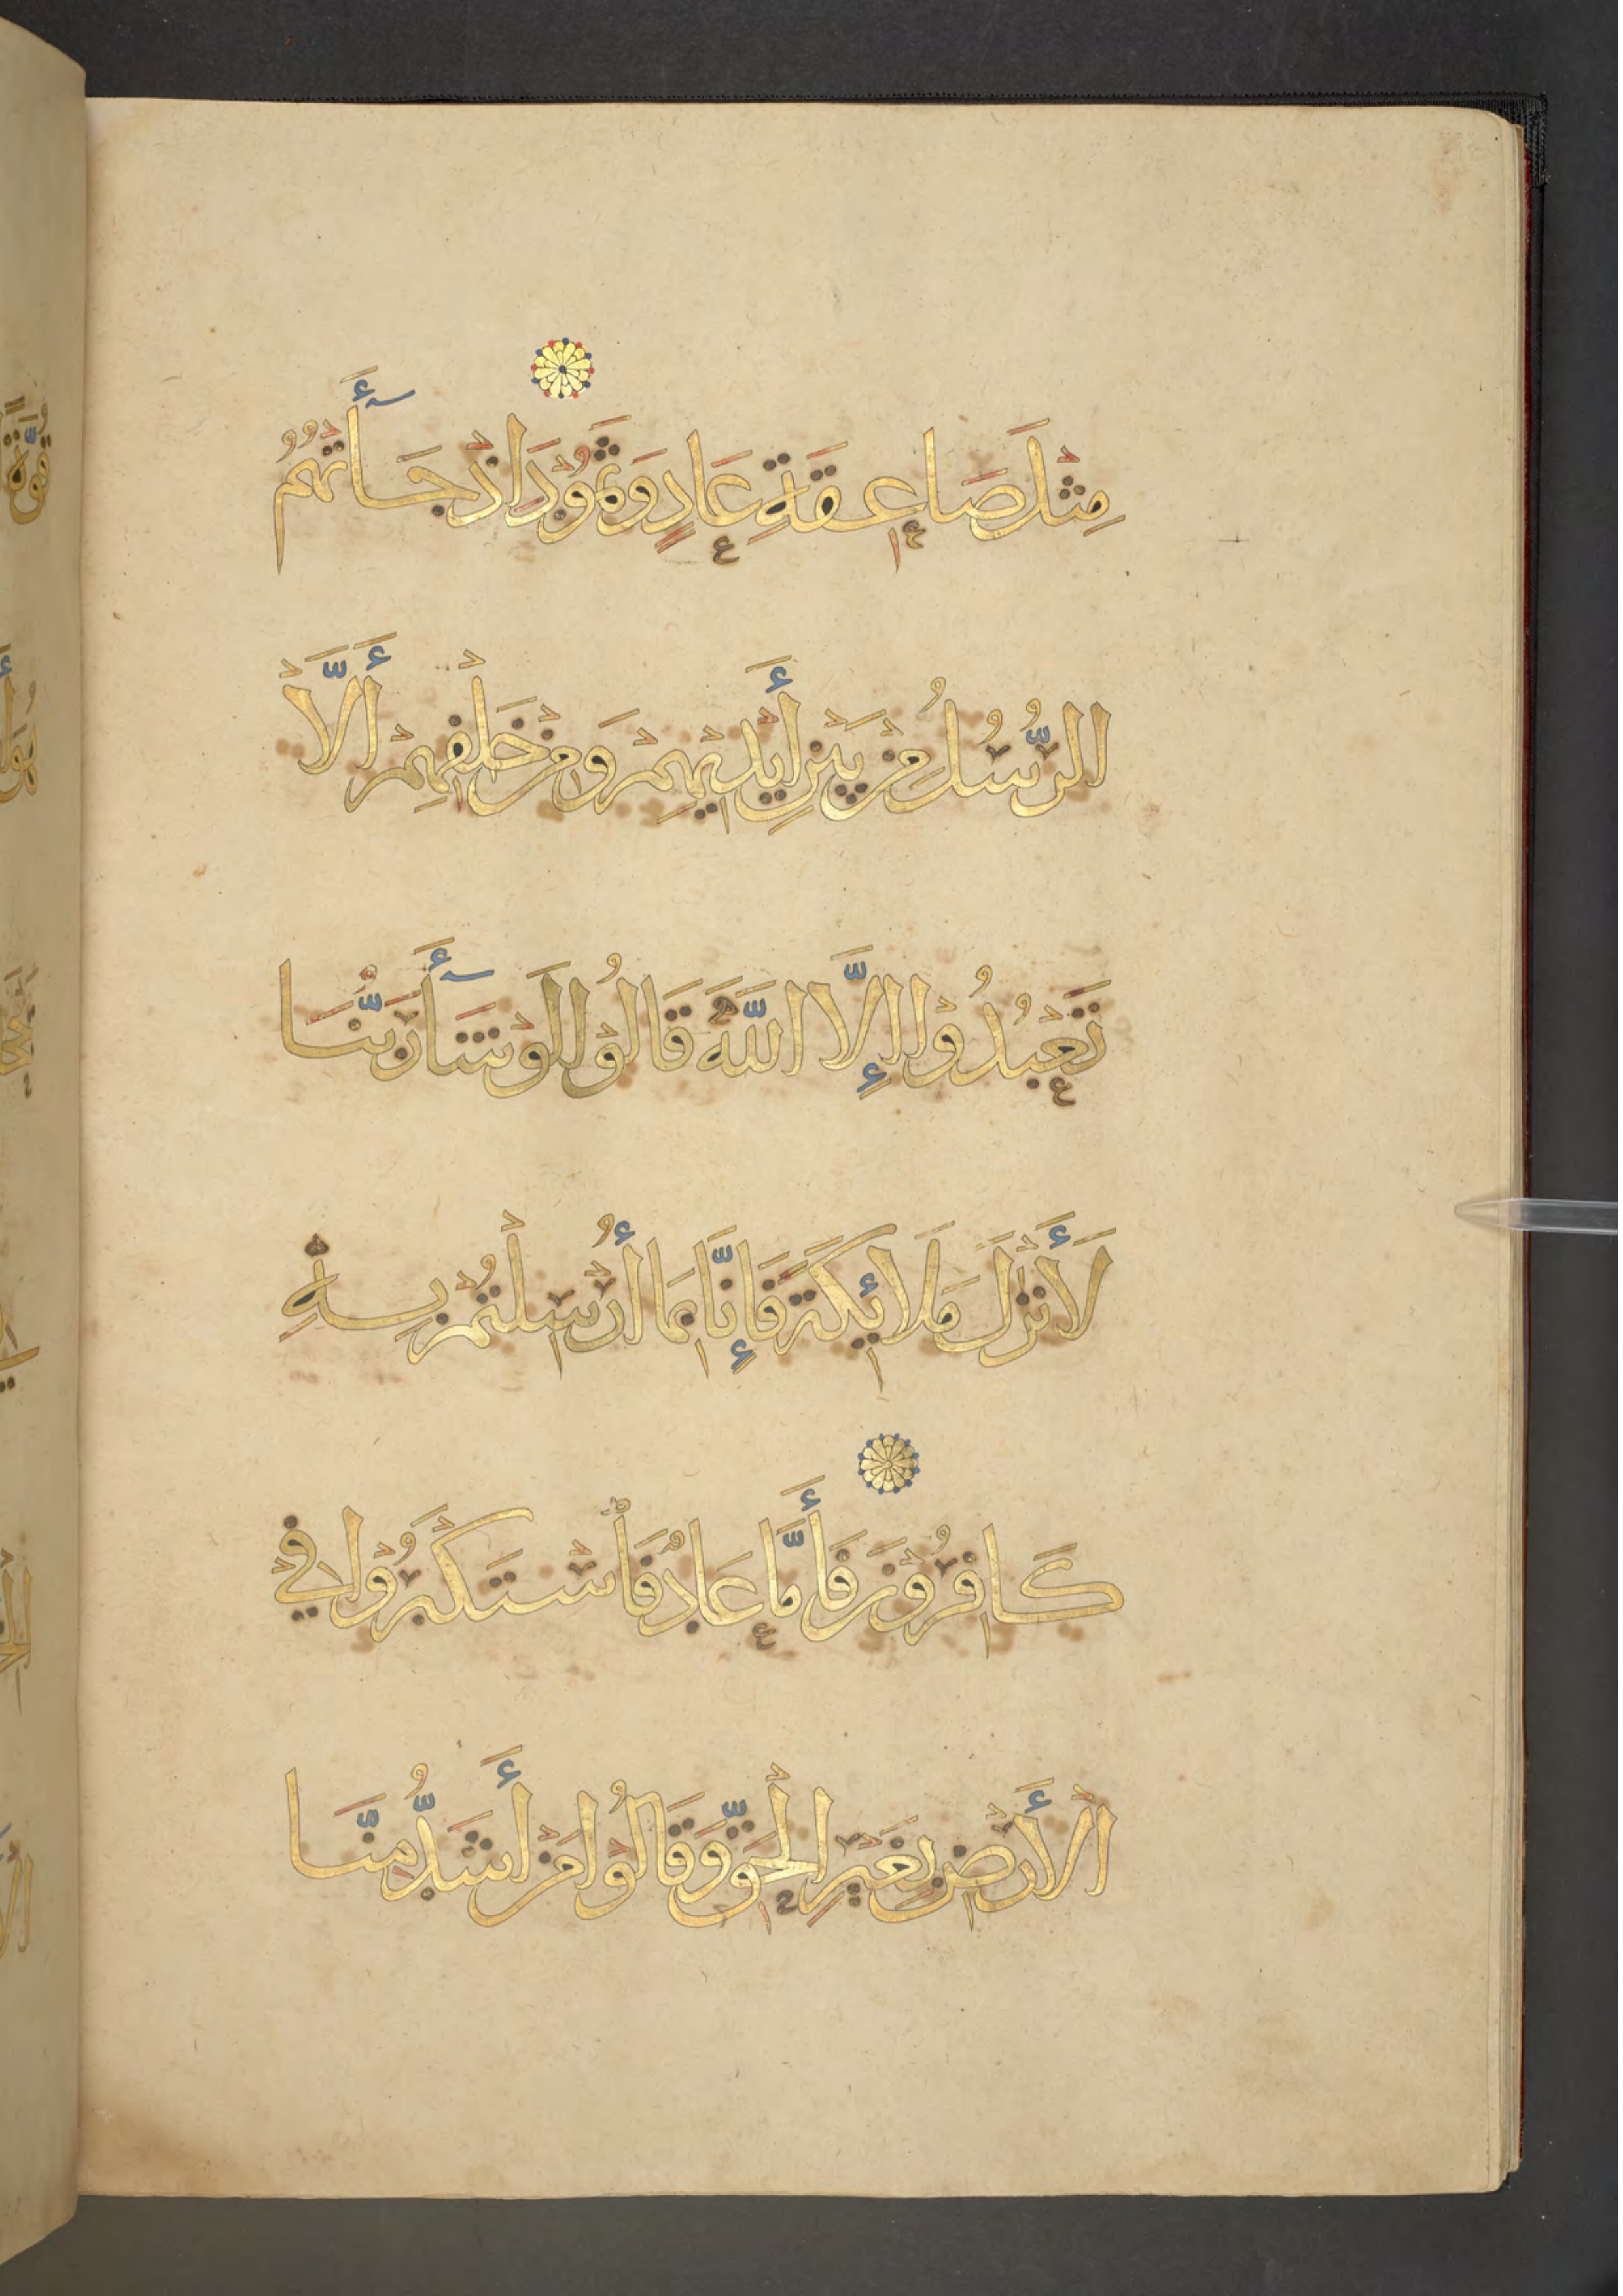 مِثْلَ صَاعِقَةِ عَادٍ وَثَمُوْدَ اِذْ جَآءَتْهُمُ
الرُّسُلُ مِنْ بَيْنِ أَيْدِيْهِمْ وَمِنْ خَلْفِهِمْ أَلَّا
تَعْبُدُوْا إِلَّا اللَّهَ قَالُوْا لَوْ شَآءَ رَبُّنَا
لَأَنْزَلَ مَلَائِكَةً فَإِنَّا بِمَا أُرْسِلْتُمْ بِهِ
كَافِرُوْنَ فَأَمَّا عَادٌ فَاسْتَكْبَرُوْا فِي
الْأَرْضِ بِغَيْرِ الْحَقِّ وَقَالُوْا مَنْ أَشَدُّ مِنَّا